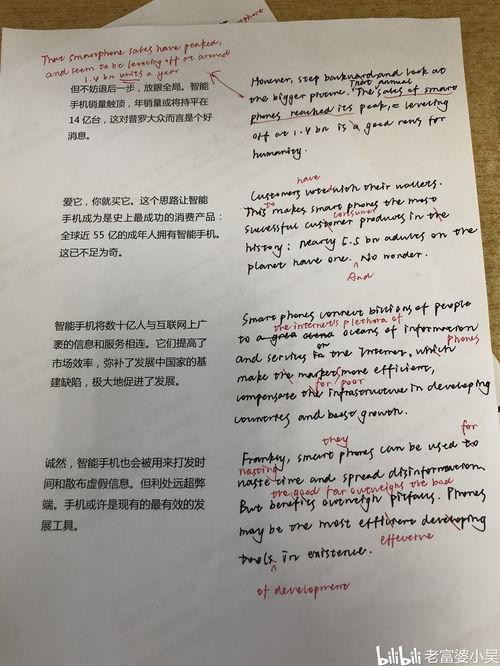 That smartphone sales have peaked,
and seem to be leveling off at around
1.4 bn units a year
但不妨退后一步，放眼全局。智能
手机销量触顶，年销量或将持平在
14 亿台，这对普罗大众而言是个好
消息。
However, step backward and look at
the bigger picture. The sales of smart
That annual
phones reached its peak, leveling
off at 1.4 bn is a good news for
humanity.
爱它，你就买它。这个思路让智能
手机成为是史上最成功的消费产品：
全球近 55 亿的成年人拥有智能手机。
这已不足为奇。
have
Customers voted with their wallets.
to
This makes smart phones the most
consumer
successful customer produces in the
history: nearly 5.5 bn adults on the
planet have one. No wonder.
And
智能手机将数十亿人与互联网上广
袤的信息和服务相连。它们提高了
市场效率，弥补了发展中国家的基
建缺陷，极大地促进了发展。
Smart phones connect billions of people
the internet's plethora of
to a oceans of information
on
and services in the Internet, which
phones
make the markets more efficient,
for poor
compensate the infrastructure in developing
countries and boost growth.
诚然，智能手机也会被用来打发时
间和散布虚假信息。但利处远超弊
端。手机或许是现有的最有效的发
展工具。
they
for
Frankly, smart phones can be used to
wasting
waste time and spread disinformation.
the good far outweighs the bad
But benefits outweigh pitfalls. Phones
may be the most efficient developing
effective
tools in existence.
of development
bilibili 老富婆小吴